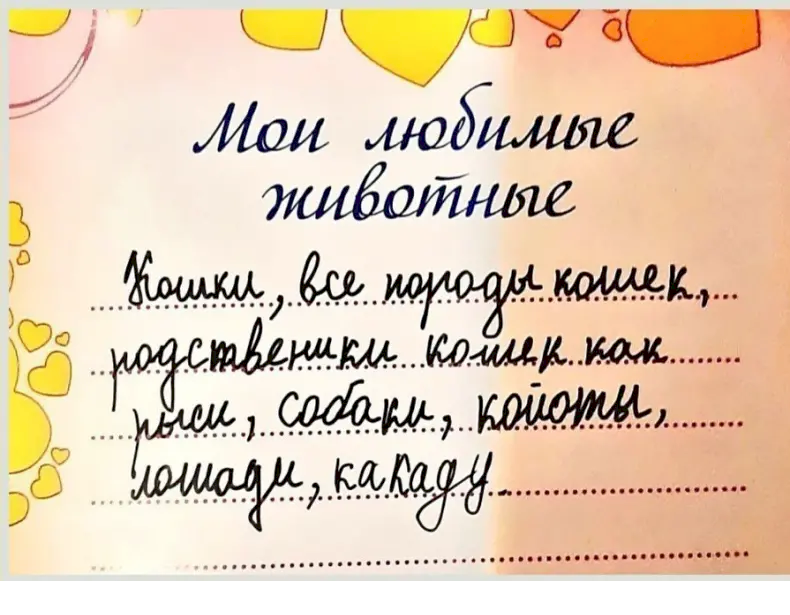 Мои любимые
животные
Кошки, все породы кошек,
родственики кошек как
рыси, собаки, койоты,
лошади, какаду.